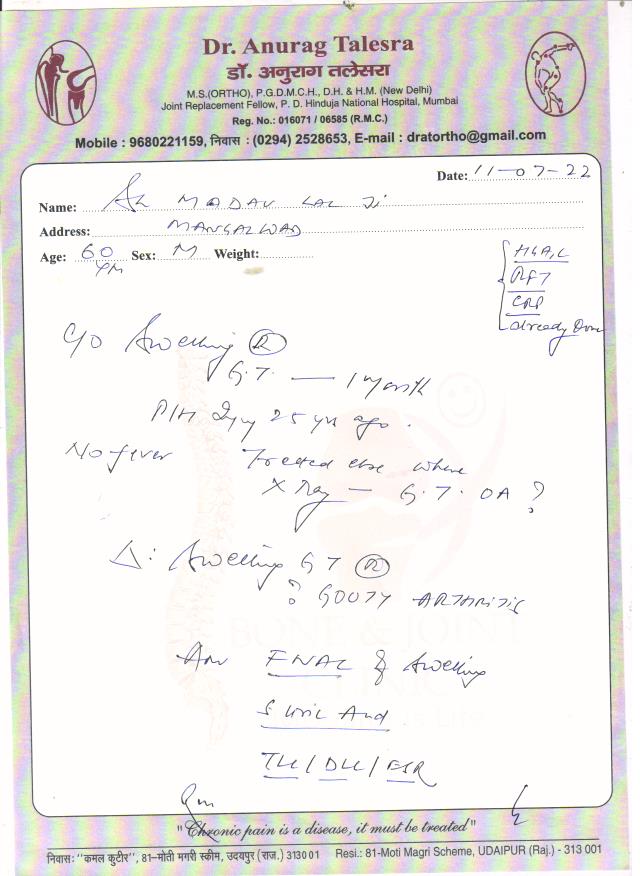 Dr. Anurag Talesra
डॉ. अनुराग तलेसरा
M.S.(ORTHO), P.G.D.M.C.H., D.H. & H.M. (New Delhi)
Joint Replacement Fellow, P. D. Hinduja National Hospital, Mumbai
Reg. No.: 016071 / 06585 (R.M.C.)
Mobile : 9680221159, निवास : (0294) 2528653, E-mail : dratortho@gmail.com
Date: 11-07-22
Name: MADAV LAL Ji
Address: MANGALWAD
Age: 60 Sex: M Weight:
HbA1C
RFT
CRP
already Done
C/O Swelling (R)
G.T. — 1 Month
P/H Injury 25 yrs ago.
No fever Treated else where
X Ray — G.T. OA ?
Δ: Swelling GT (R)
? GOUTY ARTHRITIS
Adv FNAC of Swelling
S Uric Acid
TLC / DLC / ESR
BONE & JOINT
CLINIC
"Chronic pain is a disease, it must be treated"
निवास: "कमल कुटीर", 81-मोती मगरी स्कीम, उदयपुर (राज.) 313001 Resi.: 81-Moti Magri Scheme, UDAIPUR (Raj.) - 313 001